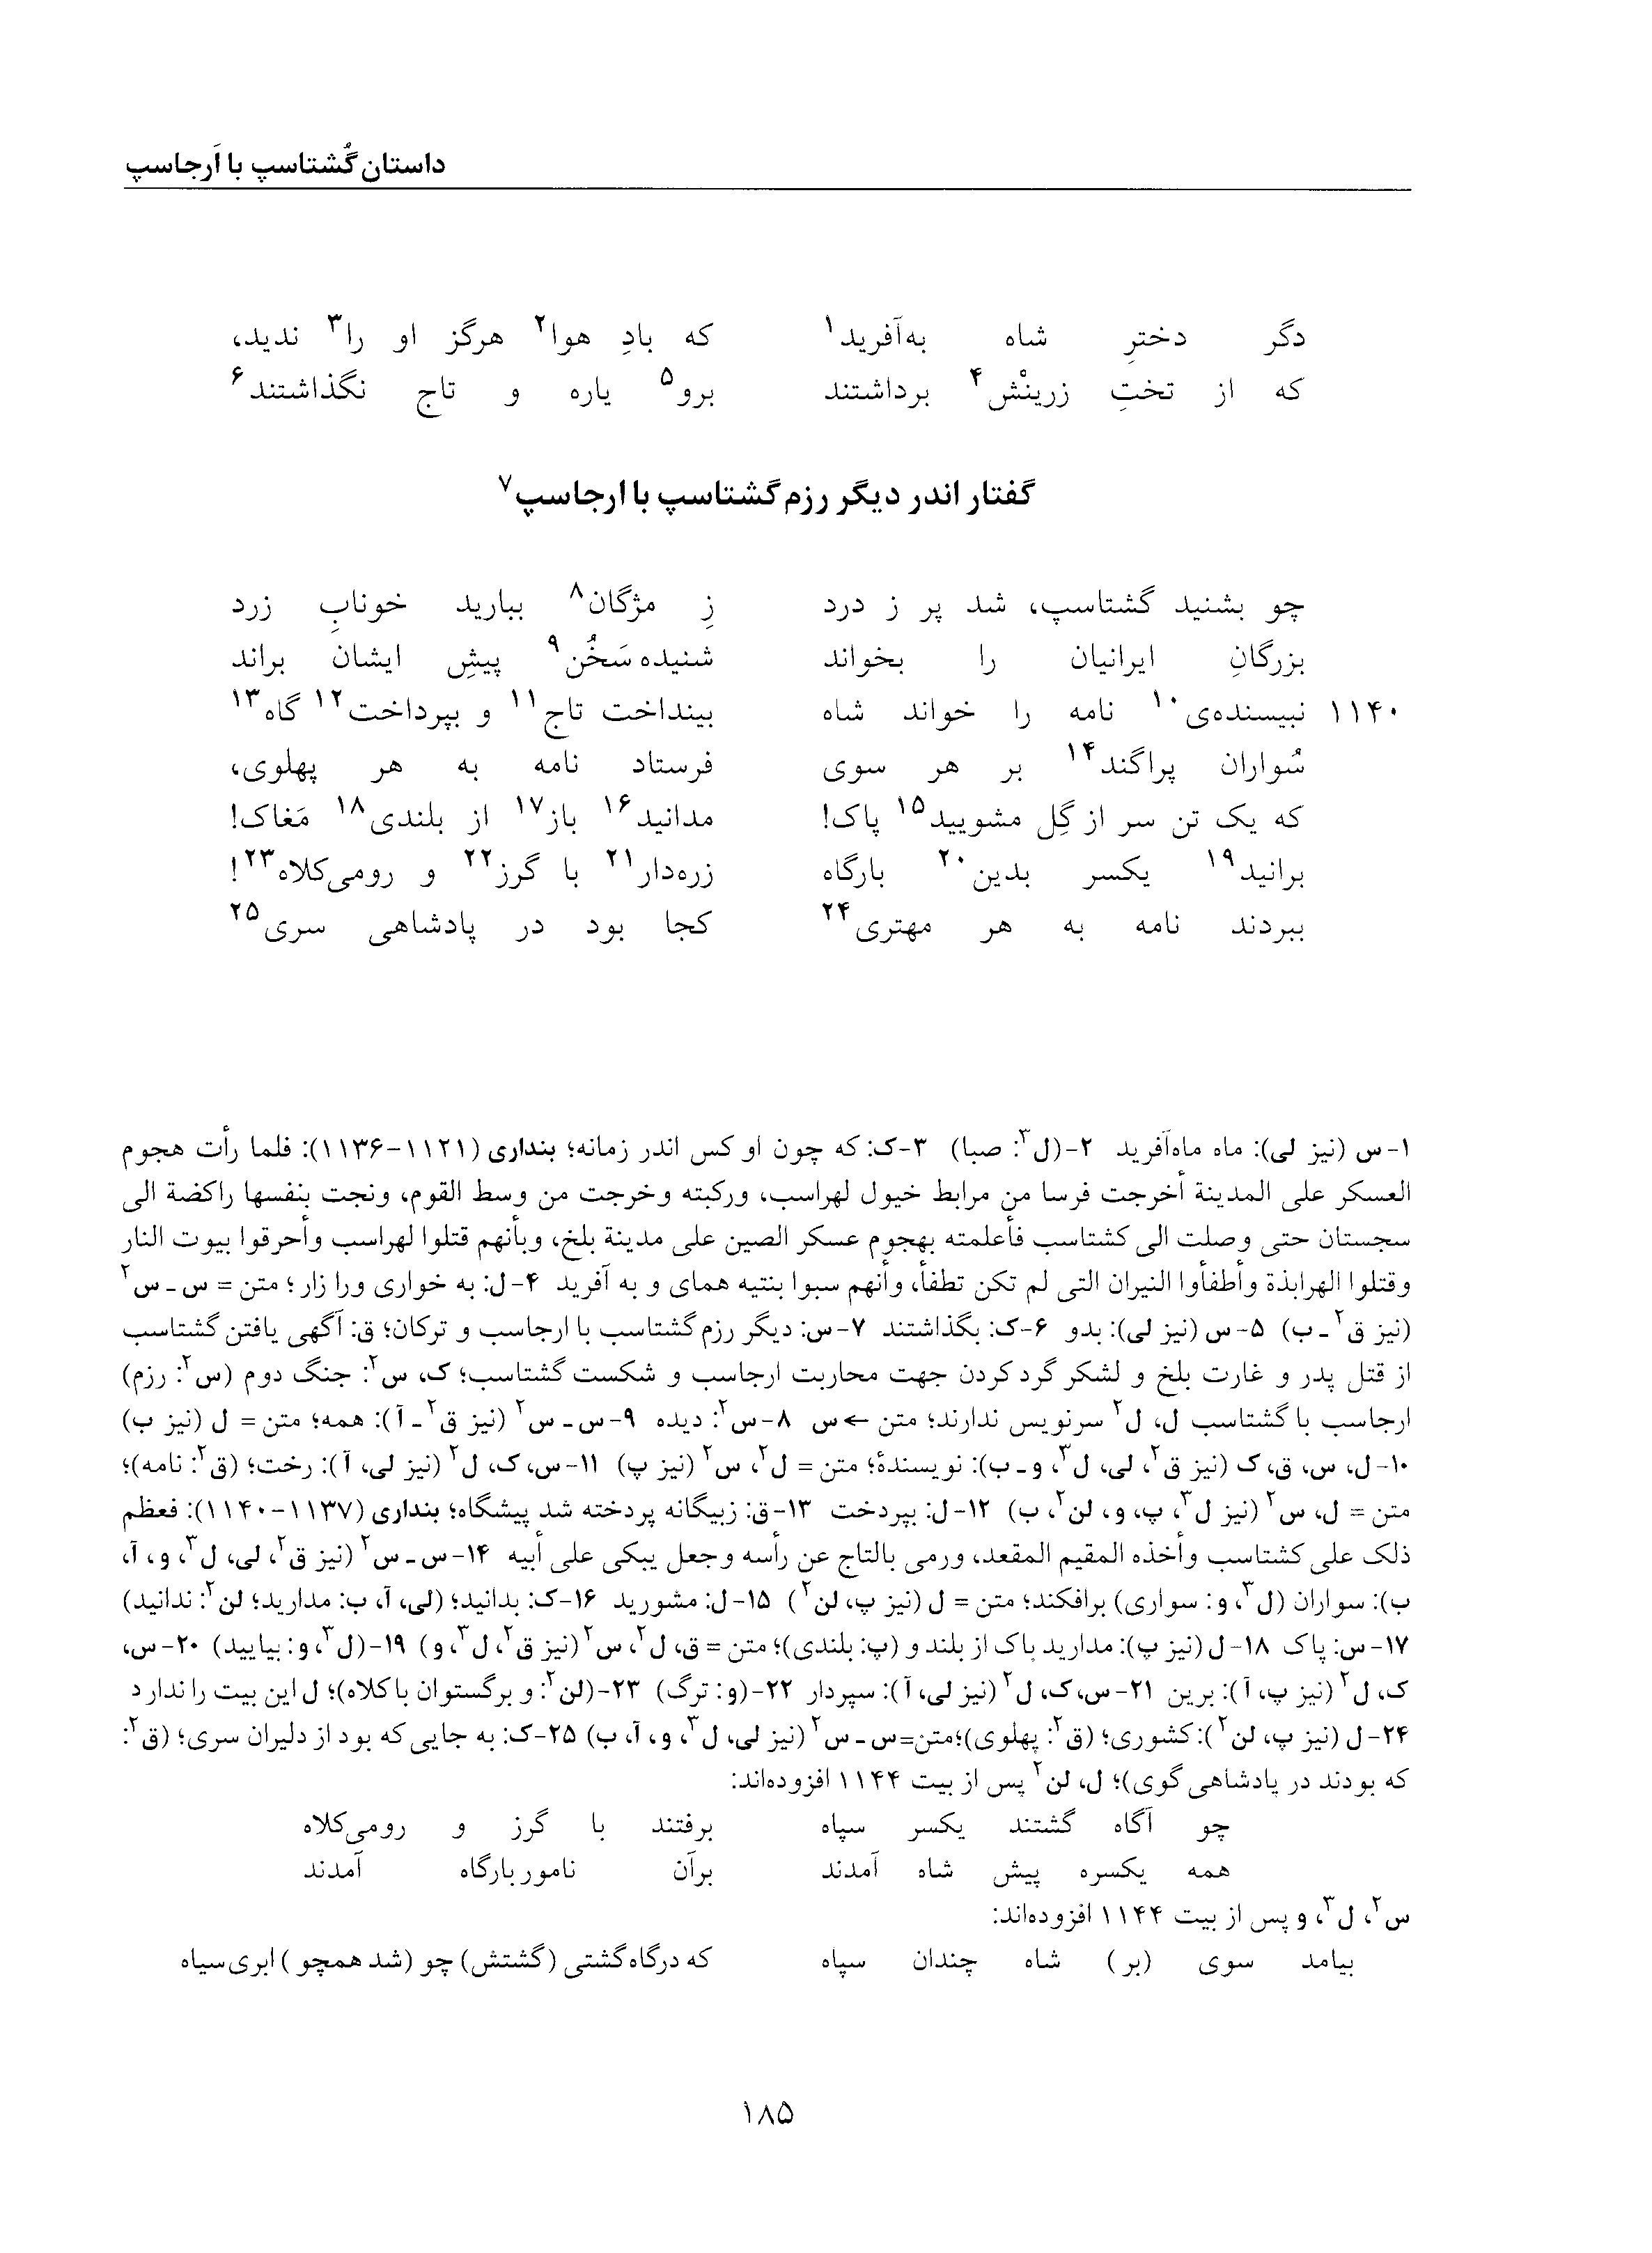 داستان گُشتاسپ با اَرجاسپ
دگر دخترِ شاه به‌آفرید۱ که بادِ هوا۲ هرگز او را۳ ندید،
که از تختِ زرینْش۴ برداشتند برو۵ یاره و تاج نگذاشتند۶
گفتار اندر دیگر رزم گشتاسپ با ارجاسپ۷
چو بشنید گشتاسپ، شد پر ز درد زِ مژگان۸ ببارید خونابِ زرد
بزرگانِ ایرانیان را بخواند شنیده سَخُن۹ پیشِ ایشان براند
۱۱۴۰ نبیسنده‌ی۱۰ نامه را خواند شاه بینداخت تاج۱۱ و بپرداخت۱۲ گاه۱۳
سُواران پراگند۱۴ بر هر سوی فرستاد نامه به هر پهلوی،
که یک تن سر از گِل مشویید۱۵ پاک! مدانید۱۶ باز۱۷ از بلندی۱۸ مَغاک!
برانید۱۹ یکسر بدین۲۰ بارگاه زره‌دار۲۱ با گرز۲۲ و رومی‌کلاه۲۳!
ببردند نامه به هر مهتری۲۴ کجا بود در پادشاهی سری۲۵
۱- س (نیز لی): ماه ماه‌آفرید ۲-(ل۳: صبا) ۳-ک: که چون او کس اندر زمانه؛ بنداری (۱۱۲۱-۱۱۳۶): فلما رأت هجوم
العسکر علی المدینة أخرجت فرسا من مرابط خیول لهراسب، ورکبته وخرجت من وسط القوم، ونجت بنفسها راکضة الی
سجستان حتی وصلت الی کشتاسب فأعلمته بهجوم عسکر الصین علی مدینة بلخ، وبأنهم قتلوا لهراسب وأحرقوا بیوت النار
وقتلوا الهرابذة وأطفأوا النیران التی لم تکن تطفأ، وأنهم سبوا بنتیه همای و به آفرید ۴-ل: به خواری ورا زار؛ متن = س ـ س۲
(نیز ق۲ ـ ب) ۵-س (نیز لی): بدو ۶-ک: بگذاشتند ۷-س: دیگر رزم گشتاسب با ارجاسب و ترکان؛ ق: آگهی یافتن گشتاسب
از قتل پدر و غارت بلخ و لشکر گرد کردن جهت محاربت ارجاسب و شکست گشتاسب؛ ک، س۲: جنگ دوم (س۲: رزم)
ارجاسب با گشتاسب ل، ل۲ سرنویس ندارند؛ متن ← س ۸-س۲: دیده ۹-س ـ س۲ (نیز ق۲ ـ آ): همه؛ متن = ل (نیز ب)
۱۰-ل، س، ق، ک (نیز ق۲، لی، ل۳، و ـ ب): نویسندهٔ؛ متن = ل۲، س۲ (نیز پ) ۱۱-س، ک، ل۲ (نیز لی، آ): رخت؛ (ق۲: نامه)؛
متن = ل، س۲ (نیز ل۳، پ، و، لن۲، ب) ۱۲-ل: بپردخت ۱۳-ق: زبیگانه پردخته شد پیشگاه؛ بنداری (۱۱۳۷-۱۱۴۰): فعظم
ذلک علی کشتاسب وأخذه المقیم المقعد، ورمی بالتاج عن رأسه وجعل یبکی علی أبیه ۱۴-س ـ س۲ (نیز ق۲، لی، ل۳، و، آ،
ب): سواران (ل۳، و: سواری) برافکند؛ متن = ل (نیز پ، لن۲) ۱۵-ل: مشورید ۱۶-ک: بدانید؛ (لی، آ، ب: مدارید؛ لن۲: ندانید)
۱۷-س: پاک ۱۸-ل (نیز پ): مدارید باک از بلند و (پ: بلندی)؛ متن = ق، ل۲، س۲ (نیز ق۲، ل۳، و) ۱۹-(ل۳، و: بیایید) ۲۰-س،
ک، ل۲ (نیز پ، آ): برین ۲۱-س، ک، ل۲ (نیز لی، آ): سپردار ۲۲-(و: ترگ) ۲۳-(لن۲: و برگستوان با کلاه)؛ ل این بیت را ندارد
۲۴-ل (نیز پ، لن۲): کشوری؛ (ق۲: پهلوی)؛ متن=س ـ س۲ (نیز لی، ل۳، و، آ، ب) ۲۵-ک: به جایی که بود از دلیران سری؛ (ق۲:
که بودند در پادشاهی گوی)؛ ل، لن۲ پس از بیت ۱۱۴۴ افزوده‌اند:
چو آگاه گشتند یکسر سپاه برفتند با گرز و رومی‌کلاه
همه یکسره پیش شاه آمدند برآن ناموربارگاه آمدند
س۲، ل۳، و پس از بیت ۱۱۴۴ افزوده‌اند:
بیامد سوی (بر) شاه چندان سپاه که درگاه گشتی (گشتش) چو (شد همچو) ابری سیاه
۱۸۵